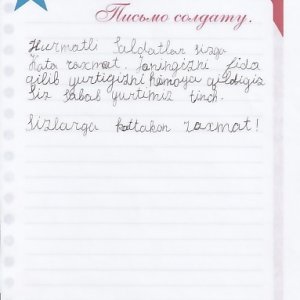 Письмо солдату.
Hurmatli Saldatlar sizga
kata raxmat. Joningizni fido
qilib yurtigizni himoya qildigiz
Siz sabab yurtimiz tinch.
Sizlarga kattakon raxmat!